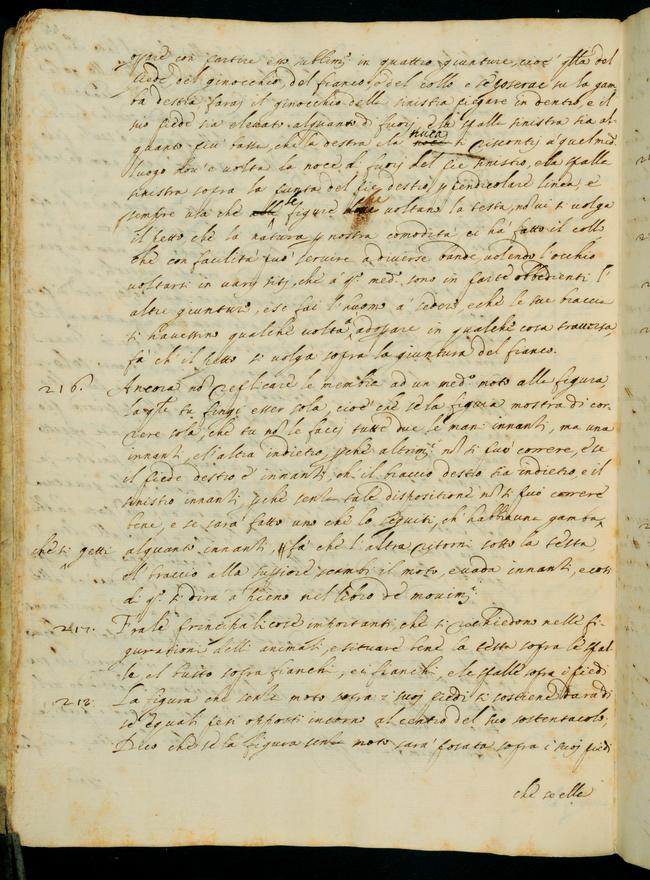 essere con partire esso sublimi in quattro giunture, cioè qlla del
piede, del ginocchio, del fianco, e del collo e se poserai su la gam
ba destra farai il ginocchio della sinistra piegare in dentro, e il
suo piede sia elevato alquanto di fuori, e la spalla sinistra sia al
quanto più bassa, che la destra e la nuca si riscontri a quel med.
luogo dov'è volta la noce di fuori del piè sinistro, e la spalla
sinistra sopra la punta del piè destro p pendicolare linea, e
sempre usa che le figure che voltano la testa, no vi si volga
il petto che la natura p nostra comodità ci ha fatto il collo
che con facilità può servire a diverse bande, volendo l'occhio
voltarsi in varij siti, che a q. med. sono in parte obbedienti l'
altre giunture, e se fai l'huomo a sedere e che le sue braccia
si havessino qualche volta adoprare in qualche cosa traversa,
fà ch il petto si volga sopra la giuntura del fianco.
216. Ancora no replicare le membra ad un med. moto alla figura,
la qle tu fingi esser sola, cioè che se la figura mostra di cor
rere sola, che tu nō le facci tutte due le mani innanti, ma una
innanti, e l'altra indietro, pche altrimi nō si può correre, e se
il piede destro è innanti, ch il braccio destro sia indietro, e il
sinistro innanti pche senza tale dispositione nō si può correre
bene, e se sarà fatto uno che lo seguiti, ch habbia una gamba,
che si getti alquanto innanti, fà che l'altra ritorni sotto la testa,
e l braccio alla superiore scambi il moto, e vada innanti, e così
di q. si dirà a pieno nel libro de movimi
217. Fra le principali cose importanti, che si richiedono nelle fi
gurationi delli animali, è situare bene la testa sopra le spal
le, el busto sopra fianchi, e i fianchi, e le spalle sopra i piedi
218. La figura che senza moto sopra i suoj piedi si sostiene darà di
sé eguali pesi oppositi intorno al centro del suo sostentacolo,
Dico che se la figura senza moto sarà posata sopra i suoj piedi
che se ella